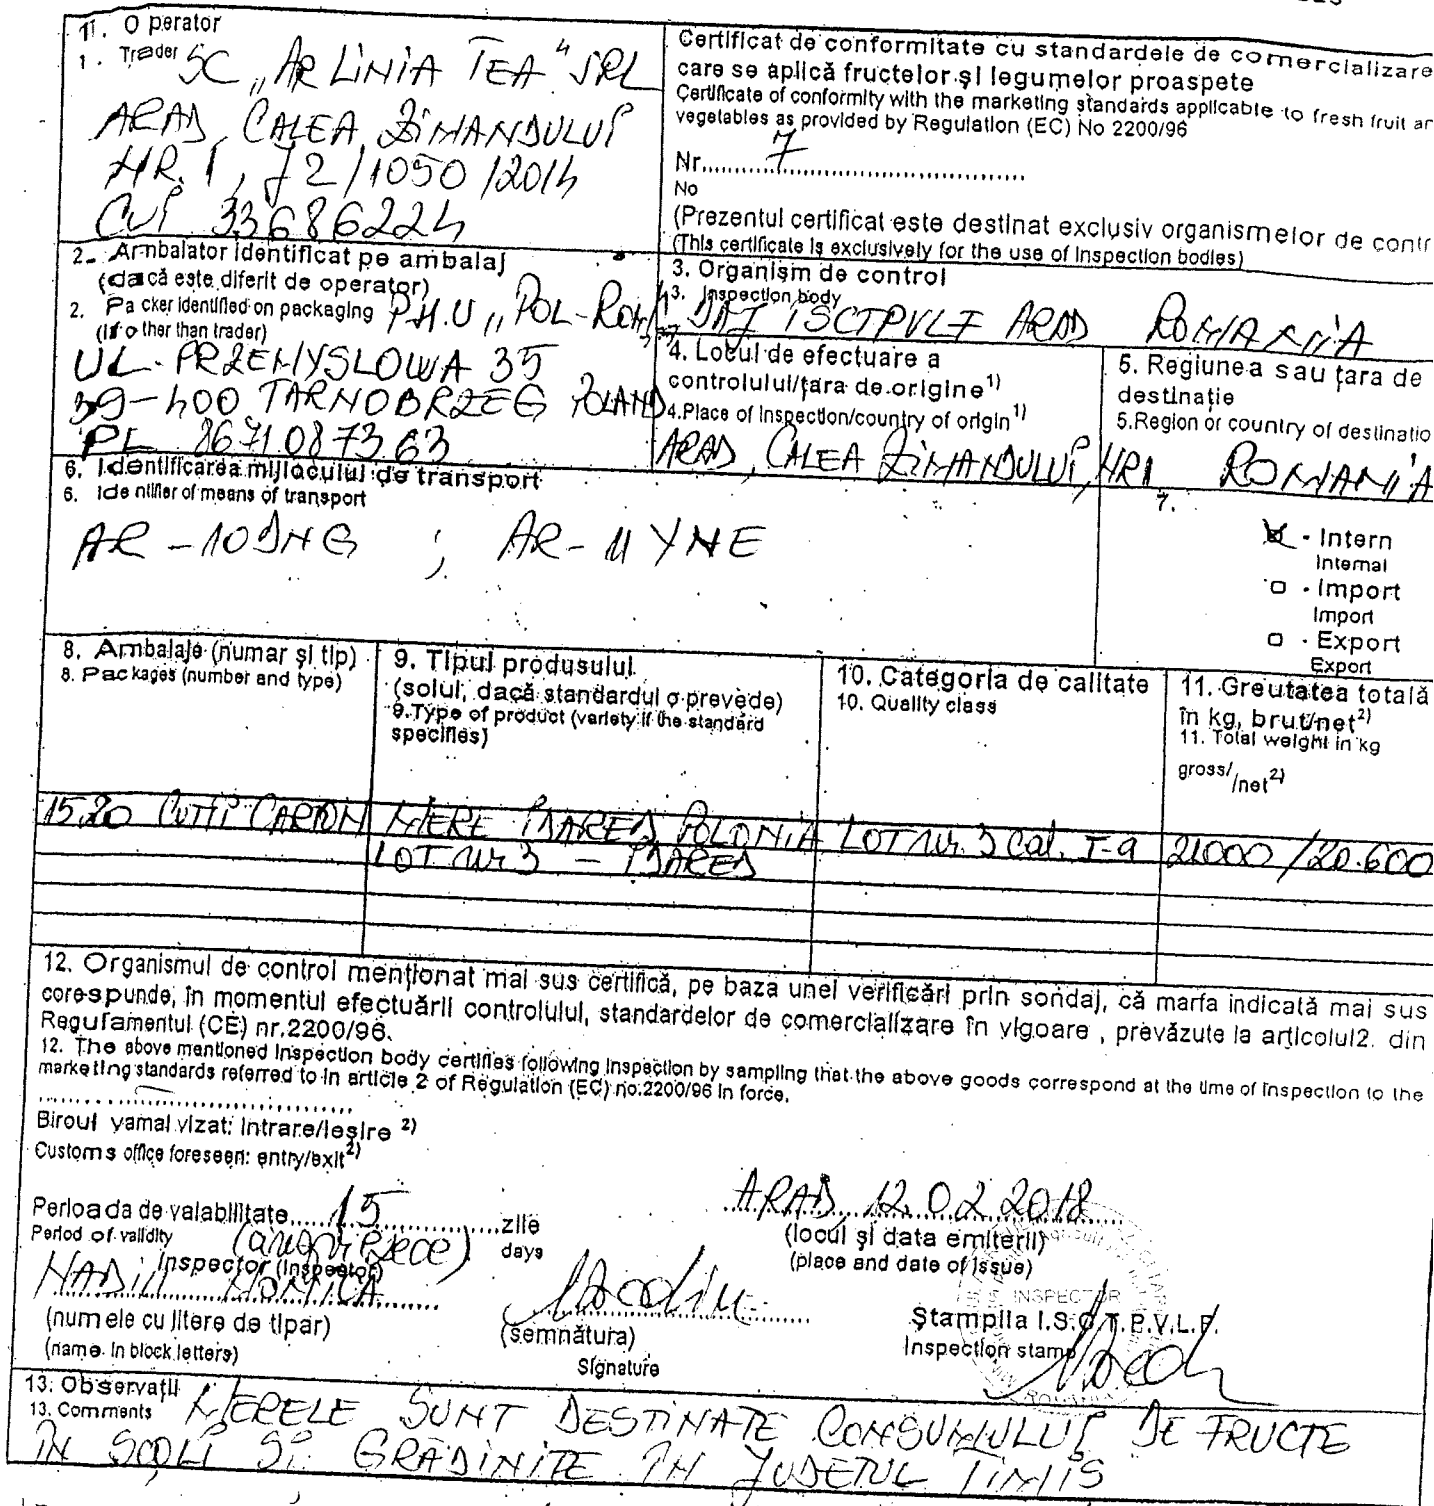 1. Operator
1. Trader SC „AR LINIA TEA" SRL
ARAD, CALEA ZIMANDULUI
NR. 1, J2/1050/2014
CUI 33686224
Certificat de conformitate cu standardele de comercializare
care se aplică fructelor și legumelor proaspete
Certificate of conformity with the marketing standards applicable to fresh fruit an
vegetables as provided by Regulation (EC) No 2200/96
Nr. 7
No
(Prezentul certificat este destinat exclusiv organismelor de contr
(This certificate is exclusively for the use of Inspection bodies)
2. Ambalator identificat pe ambalaj
(dacă este diferit de operator)
2. Packer identified on packaging P.H.U „POL-ROM"
(if other than trader)
UL. PRZEMYSLOWA 35
39-400 TARNOBRZEG POLAND
PL 8671087363
3. Organism de control
3. Inspection body
DAJ ISCTPVLF ARAD ROMANIA
4. Locul de efectuare a
controlului/țara de origine1)
4.Place of Inspection/country of origin1)
ARAD, CALEA ZIMANDULUI, NR1
5. Regiunea sau țara de
destinație
5.Region or country of destinatio
ROMANIA
6. Identificarea mijlocului de transport
6. Identifier of means of transport
AR-10DNG ; AR-11YNE
7.
- Intern
Internal
- Import
Import
- Export
Export
8. Ambalaje (numar și tip)
8. Packages (number and type)
9. Tipul produsului
(soiul, dacă standardul o prevede)
9.Type of product (variety if the standard
specifies)
10. Categoria de calitate
10. Quality class
11. Greutatea totală
în kg, brut/net2)
11. Total weight in kg
gross/ /net2)
1520 CUTII CARTON MERE IDARED POLONIA LOT nr. 3 cal. I-a 21000/20.600
LOT nr 3 - IDARED
12. Organismul de control menționat mai sus certifică, pe baza unei verificări prin sondaj, că marfa indicată mai sus
corespunde, în momentul efectuării controlului, standardelor de comercializare în vigoare , prevăzute la articolul2. din
Regulamentul (CE) nr.2200/96.
12. The above mentioned Inspection body certifies following inspection by sampling that the above goods correspond at the time of inspection to the
marketing standards referred to in article 2 of Regulation (EC) no.2200/96 in force.
Biroul vamal vizat: intrare/ieșire 2)
Customs office foreseen: entry/exit2)
Perioada de valabilitate 15 zile
Period of validity (cincisprezece) days
ARAD 12.02.2018
(locul și data emiterii)
(place and date of issue)
Inspector (Inspector)
(numele cu litere de tipar)
(name in block letters)
(semnătura)
Signature
INSPECTOR
Ștampila I.S.C.T.P.V.L.F.
Inspection stamp
13. Observații
13. Comments MERELE SUNT DESTINATE CONSUMULUI DE FRUCTE
IN SCOLI SI GRADINITE IN JUDETUL TIMIS